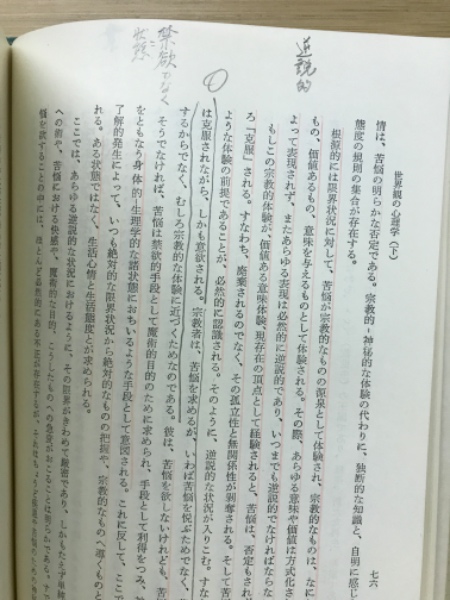 逆説的
禁欲でなく
状態
世界観の心理学(下)
七六
情は、苦悩の明らかな否定である。宗教的-神秘的な体験の代わりに、独断的な知識と、自明に感じ
態度の規則の集合が存在する。
根源的には限界状況に対して、苦悩が宗教的なものの源泉として体験され、宗教的なものは、なに
もの、価値あるもの、意味を与えるものとして体験される。その際、あらゆる意味や価値は方式化さ
よって表現されず、またあらゆる表現は必然的に逆説的であり、いつまでも逆説的でなければならな
もしこの宗教的体験が、価値ある意味体験、現存在の頂点として経験されると、苦悩は、否定もされ
ろ「克服」される。すなわち、廃棄されるのでなく、その孤立性と無関係性が剥奪される。そして苦
ような体験の前提であることが、必然的に認識される。そのように、逆説的な状況が入りこむ。すな
は克服されながら、しかも意欲される。宗教者は、苦悩を求めるが、いわば苦悩を悦ぶためでなく、
するからでなく、むしろ宗教的な体験に近づくためなのである。彼は、苦悩を欲しないけれども、苦
そうでなければ、苦悩は禁欲的手段として魔術的目的のために求められ、手段として利得をつみ、
をともなう身体的-生理学的な諸状態におちいるような手段として意図される。これに反して、ここで
了解的発生によって、いつも絶対的な限界状況から絶対的なものの把握や、宗教的なものへ導くものと
れる。ある状態ではなく、生活心情と生活態度とが求められる。
ここでは、あらゆる逆説的な状況におけるように、その限界がきわめて厳密であり、しかもたえず単
への癖や、苦悩における快感や、魔術的な目的、こうしたものへの急変がおこることは明らかである。
悩を欲することの中には、ほとんど必然的にある不正が存在するが、それは